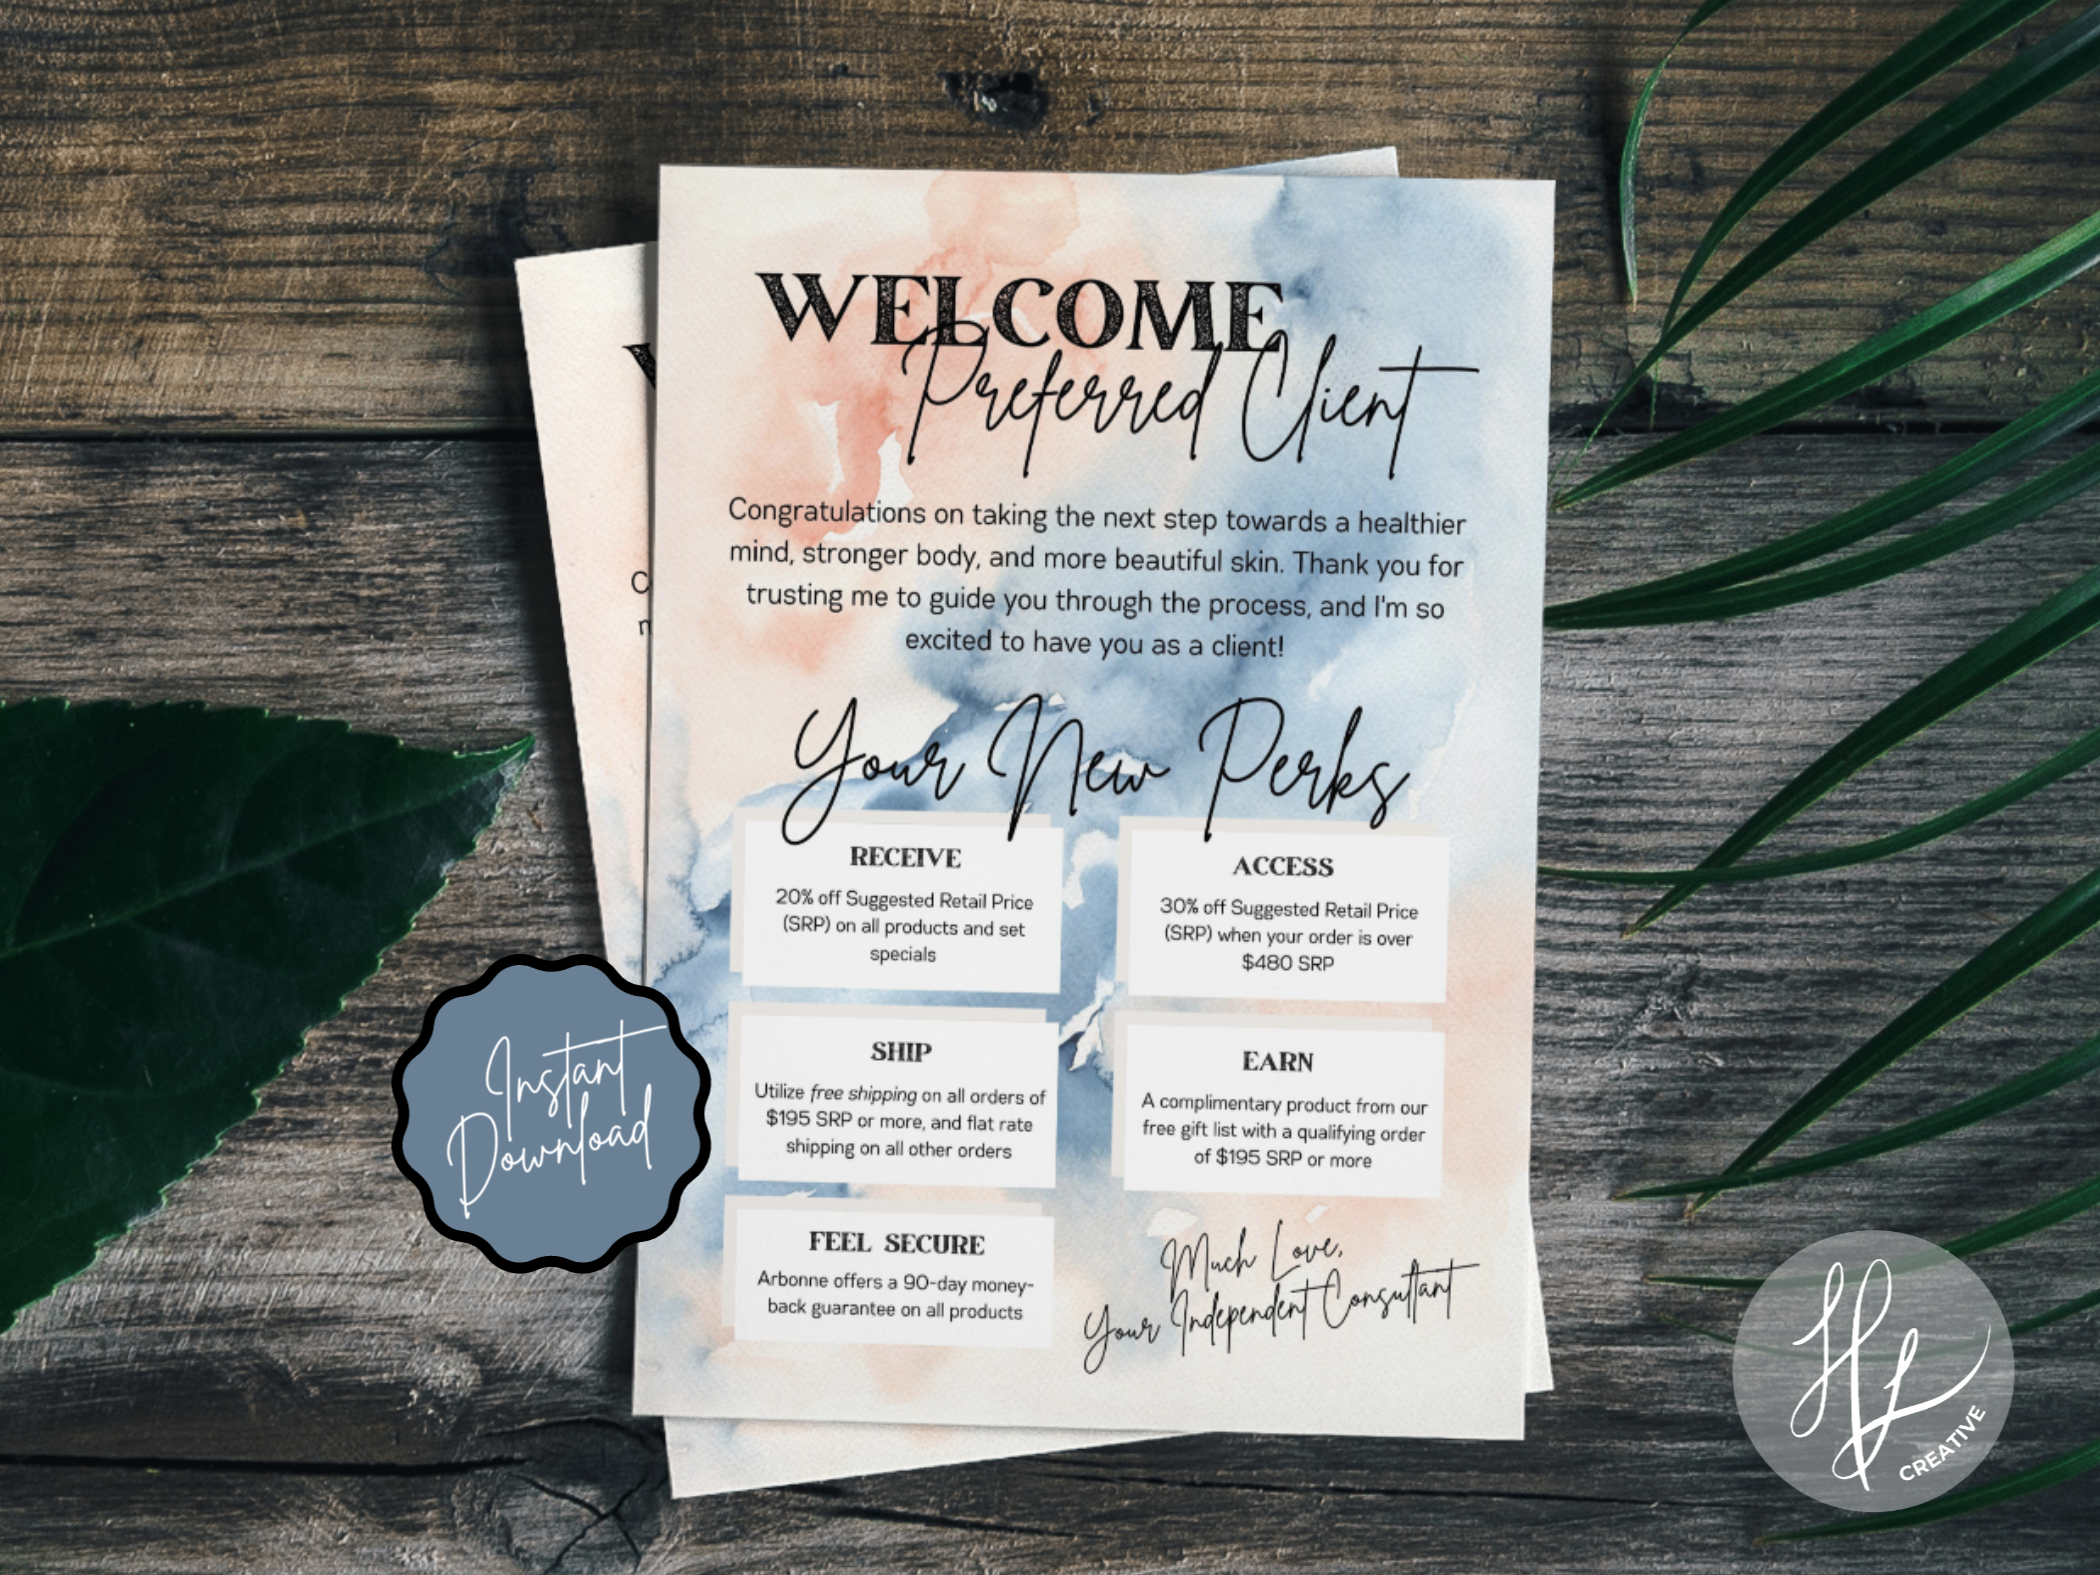 WELCOME
Preferred Client
Congratulations on taking the next step towards a healthier
mind, stronger body, and more beautiful skin. Thank you for
trusting me to guide you through the process, and I'm so
excited to have you as a client!
Your New Perks
RECEIVE
20% off Suggested Retail Price
(SRP) on all products and set
specials
ACCESS
30% off Suggested Retail Price
(SRP) when your order is over
$480 SRP
SHIP
Utilize free shipping on all orders of
$195 SRP or more, and flat rate
shipping on all other orders
EARN
A complimentary product from our
free gift list with a qualifying order
of $195 SRP or more
FEEL SECURE
Arbonne offers a 90-day money-
back guarantee on all products
Much Love,
Your Independent Consultant
Instant
Download
HL
CREATIVE